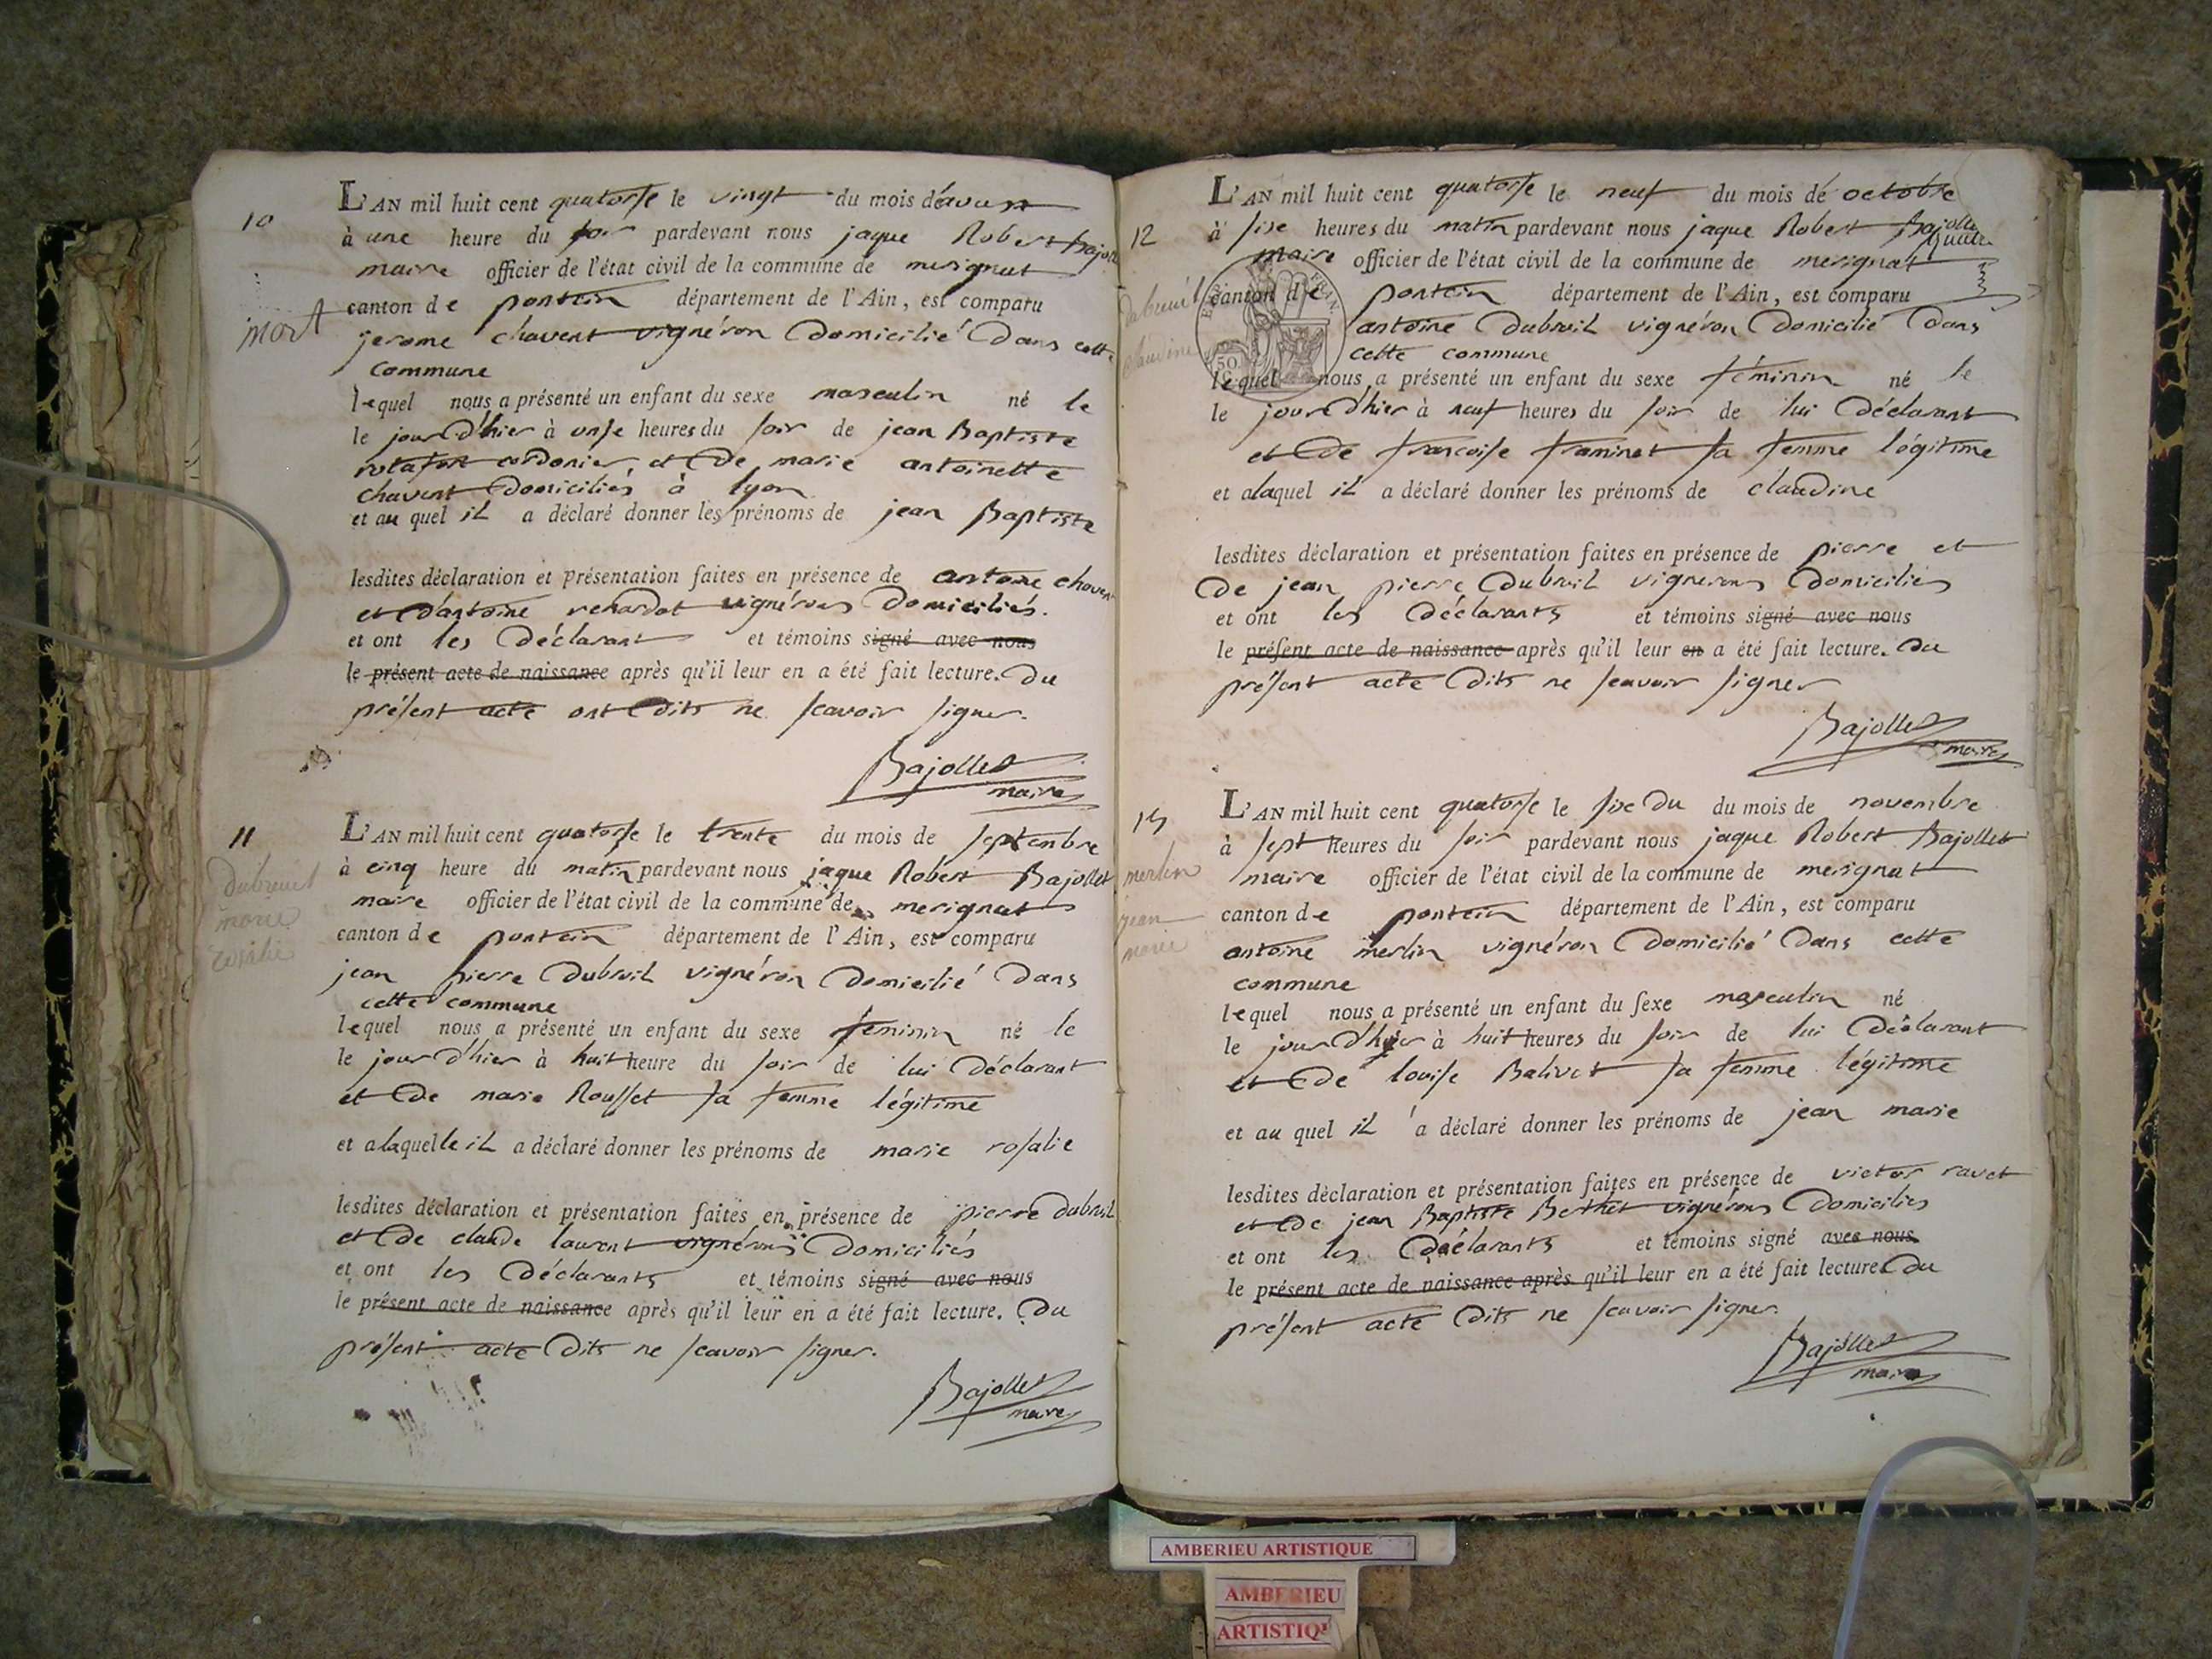 10
mort
L'AN mil huit cent quatorse le vingt du mois d'avust
à une heure du soir pardevant nous jaque Robert Bajollet
maire officier de l'état civil de la commune de merignat
canton de pontein département de l'Ain, est comparu
jerome chavent vignéron domicilié dans cette
commune
lequel nous a présenté un enfant du sexe masculin né le
le jour d'hier à onse heures du soir de jean Baptiste
rotafort cordonier et de marie antoinette
chavent domiciliés à lyon
et au quel il a déclaré donner les prénoms de jean Baptiste
lesdites déclaration et présentation faites en présence de antoine chavent
et d'antoine renardot vignérons domiciliés.
et ont les déclarant et témoins signé avec nous
le présent acte de naissance après qu'il leur en a été fait lecture. du
présent acte ont dits ne scavoir signer.
Bajollet
maire
11
dubreuil
marie
rosalie
L'AN mil huit cent quatorse le trente du mois de septembre
à cinq heure du matin pardevant nous jaque Robert Bajollet
maire officier de l'état civil de la commune de merignat
canton de pontein département de l'Ain, est comparu
jean pierre dubruil vignéron domicilié dans
cette commune
lequel nous a présenté un enfant du sexe feminin né le
le jour d'hier à huit heure du soir de lui déclarant
et de marie Rousset sa femme légitime
et alaquelle il a déclaré donner les prénoms de marie rosalie
lesdites déclaration et présentation faites en présence de pierre dubruil
et de claude laurent vignérons domiciliés
et ont les déclarants et témoins signé avec nous
le présent acte de naissance après qu'il leur en a été fait lecture. du
présent acte dits ne scavoir signer.
Bajollet
maire
12
dubreuil
claudine
L'AN mil huit cent quatorse le neuf du mois de octobre
à sixe heures du matin pardevant nous jaque Robert Bajollet
maire officier de l'état civil de la commune de merignat
canton de pontein département de l'Ain, est comparu
antoine dubruil vignéron domicilié dans
cette commune
lequel nous a présenté un enfant du sexe féminin né le
le jour d'hier à neuf heures du soir de lui déclarant
et de francoise framinet sa femme légitime
et alaquel il a déclaré donner les prénoms de claudine
lesdites déclaration et présentation faites en présence de pierre et
de jean pierre dubruil vignerons domiciliés
et ont les déclarants et témoins signé avec nous
le présent acte de naissance après qu'il leur en a été fait lecture. du
présent acte dits ne scavoir signer
Bajollet
maire
50
merlin
jean
marie
L'AN mil huit cent quatorse le sixe du du mois de novembre
à sept heures du soir pardevant nous jaque Robert Bajollet
maire officier de l'état civil de la commune de merignat
canton de pontein département de l'Ain, est comparu
antoine merlin vignéron domicilié dans cette
commune
lequel nous a présenté un enfant du sexe masculin né
le jour d'hier à huit heures du soir de lui déclarant
et de louise Balivet sa femme légitime
et au quel il a déclaré donner les prénoms de jean marie
lesdites déclaration et présentation faites en présence de victor ravet
et de jean Baptiste Berthet vignérons domiciliés
et ont les déclarants et témoins signé avec nous
le présent acte de naissance après qu'il leur en a été fait lecture du
présent acte dits ne scavoir signer.
Bajollet
maire
AMBERIEU ARTISTIQUE
AMBERIEU
ARTISTIQ